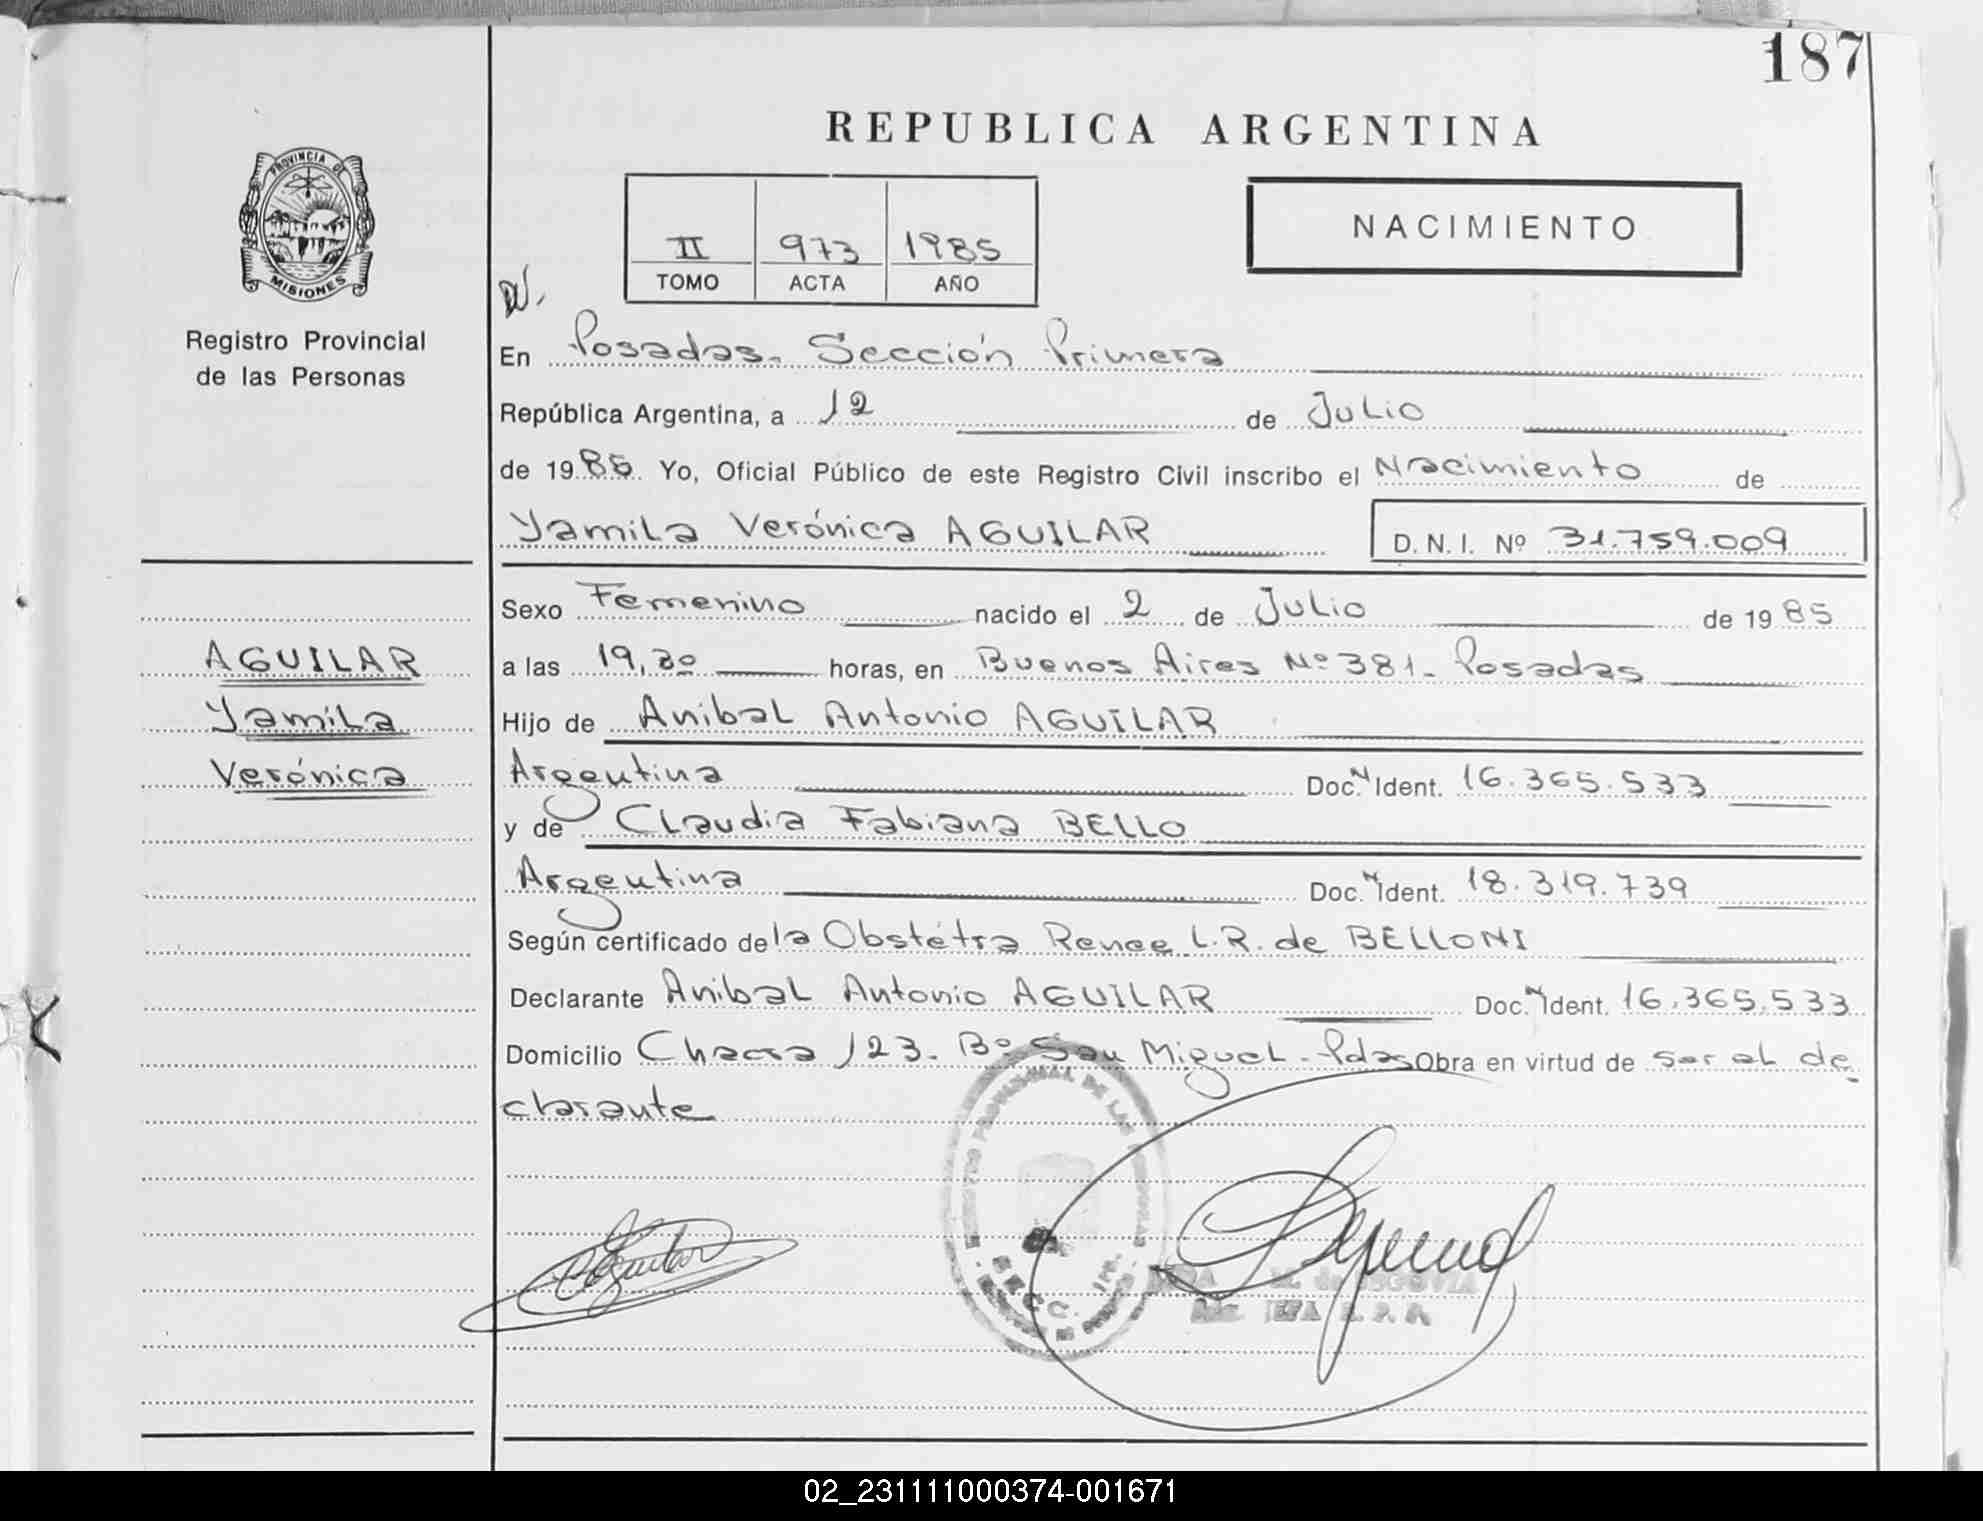 187
REPUBLICA ARGENTINA
PROVINCIA DE
MISIONES
Registro Provincial
de las Personas
II 973 1985
TOMO ACTA AÑO
NACIMIENTO
En Posadas. Sección Primera
República Argentina, a 12 de Julio
de 1985 Yo, Oficial Público de este Registro Civil inscribo el Nacimiento de
Yamila Verónica AGUILAR D. N. I. Nº 31.759.009
Sexo Femenino nacido el 2 de Julio de 1985
AGUILAR
Yamila
Verónica
a las 19,30 horas, en Buenos Aires Nº 381. Posadas
Hijo de Anibal Antonio AGUILAR
Argentina Doc. N Ident. 16.365.533
y de Claudia Fabiana BELLO
Argentina Doc. N Ident. 18.319.739
Según certificado de la Obstétra Renee L.R. de BELLONI
Declarante Anibal Antonio AGUILAR Doc. N Ident. 16.365.533
Domicilio Chacra 123. Bº San Miguel - Pdas Obra en virtud de ser el de
clarante
REGISTRO PROVINCIAL DE LAS PERSONAS
M. de SEGOVIA
JEFA R. P. P.
02_231111000374-001671